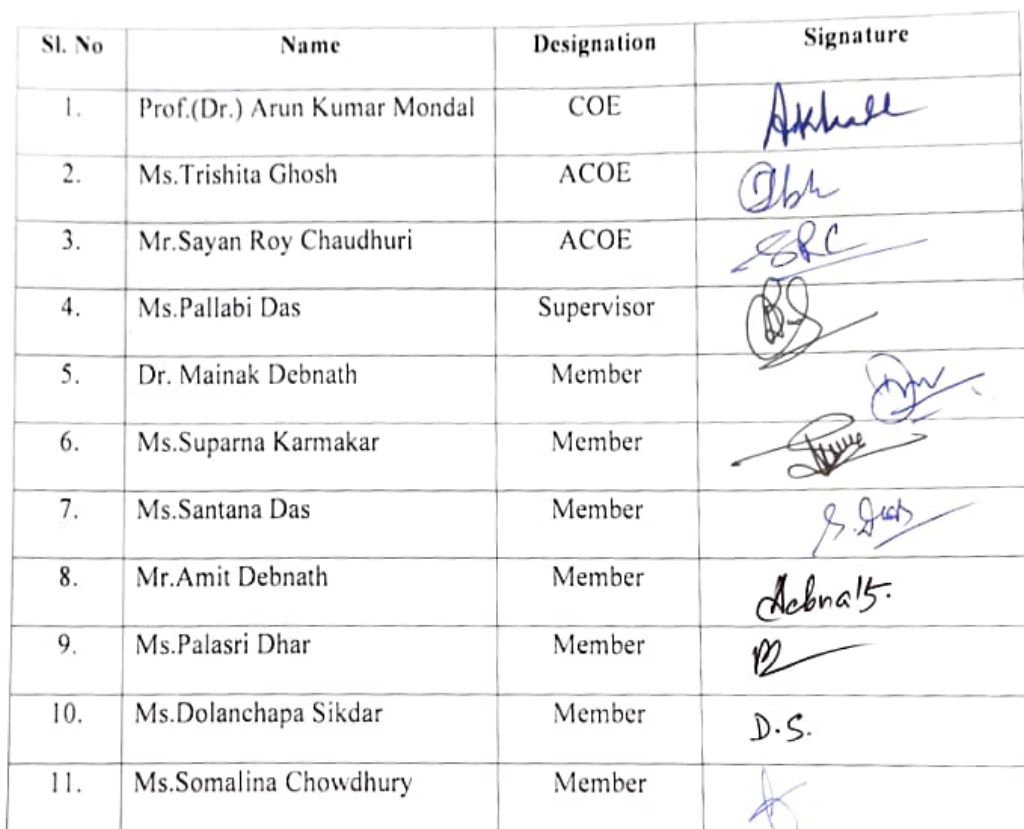 Sl. No Name Designation Signature
1. Prof.(Dr.) Arun Kumar Mondal COE
2. Ms.Trishita Ghosh ACOE
3. Mr.Sayan Roy Chaudhuri ACOE SRC
4. Ms.Pallabi Das Supervisor
5. Dr. Mainak Debnath Member
6. Ms.Suparna Karmakar Member
7. Ms.Santana Das Member S.Das
8. Mr.Amit Debnath Member
9. Ms.Palasri Dhar Member
10. Ms.Dolanchapa Sikdar Member D.S.
11. Ms.Somalina Chowdhury Member